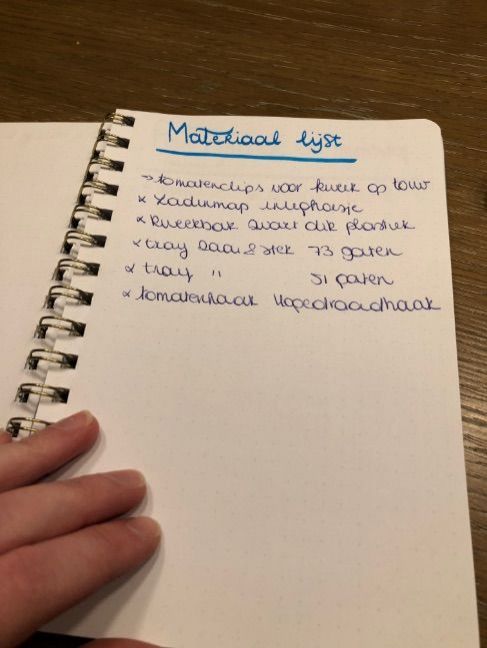 Materiaal lijst
→ tomatenclips voor kweek op touw
x Zadenmap inleghoesje
x kweekbak zwart dik plastiek
x tray Zaai & stek 73 gaten
x tray " 51 gaten
x tomatenhaak Hogedraadhaak